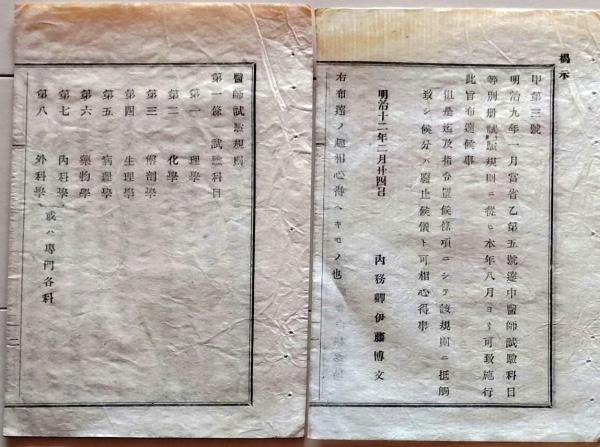 揭示
甲第三號
明治九年一月當省乙第五號達中醫師試驗科目
等別册試驗規則ニ從ヒ本年八月ヨリ可致施行
此旨布達候事
但是迄及指令置候條項ニシテ該規則ニ抵觸
致シ候分ハ廢止候儀ト可相心得事
明治十二年二月廿四日
內務卿伊藤博文
右布達ノ趣相心得ヘキモノ也
醫師試驗規則
第一條 試驗科目
第一 理學
第二 化學
第三 解剖學
第四 生理學
第五 病理學
第六 藥物學
第七 內科學
第八 外科學 或ハ專門各科